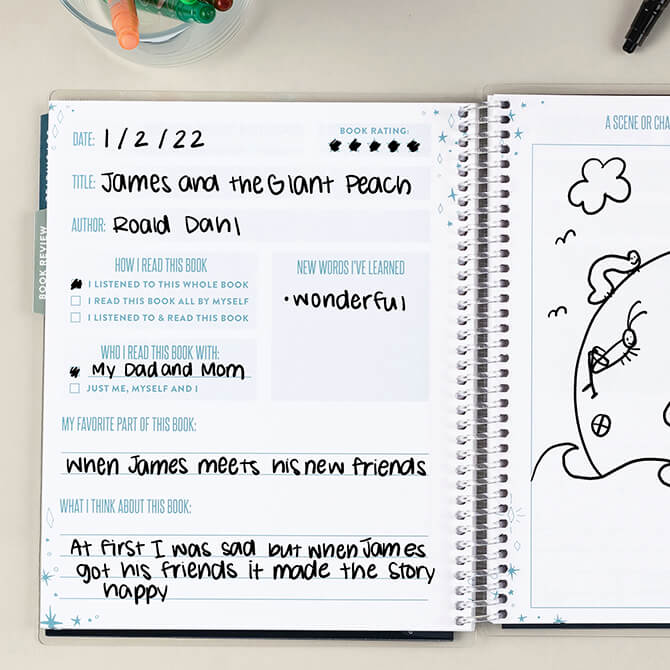 DATE: 1/2/22
BOOK RATING:
TITLE: James and the Giant Peach
AUTHOR: Roald Dahl
BOOK REVIEW
HOW I READ THIS BOOK
I LISTENED TO THIS WHOLE BOOK
I READ THIS BOOK ALL BY MYSELF
I LISTENED TO & READ THIS BOOK
NEW WORDS I'VE LEARNED
• wonderful
WHO I READ THIS BOOK WITH:
My Dad and Mom
JUST ME, MYSELF AND I
MY FAVORITE PART OF THIS BOOK:
When James meets his new friends
WHAT I THINK ABOUT THIS BOOK:
At first I was sad but when James
got his friends it made the story
happy
A SCENE OR CHA